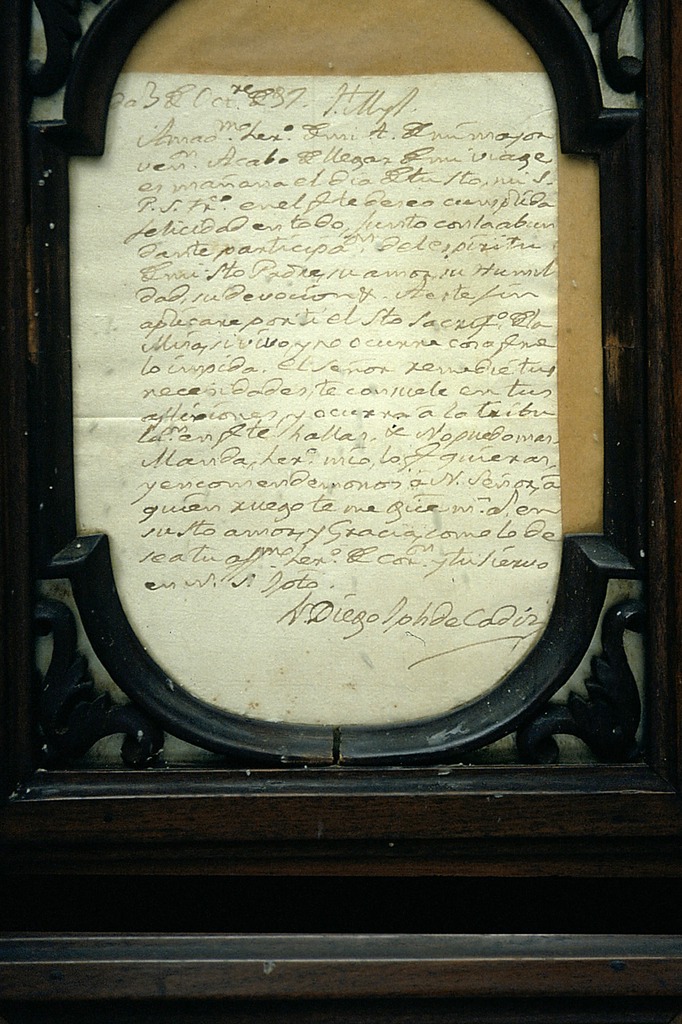 da 3 de Oct.re de 87. J. M. y J.
Amad.mo her.o de mi A. de mi mayor
ven.n Acabo de llegar de mi viage
es mañana el dia de tu Sto, mi S.
P. S. Fr.o en el q.e te deseo cumplida
felicidad en todo, junto con la abun
dante participa.on del espiritu
de mi Sto Padre, su amor, su Humil
dad, su devocion &. A este fin
aplicare por ti el Sto Sacrif.o de la
Misa, si vivo, y no ocurre cosa q.e me
lo impida. El Señor remedie tus
necesidades, te consuele en tus
aflicciones, y ocurra a la tribu
la.on en q.e te hallas. & No puedo mas.
Manda, her.o mio, lo q.e quieras,
y encomendemonos à N. Señor, à
quien ruego te me gûe m.s a.s en
su Sto amor, y Gracia, como lo de
sea tu aff.mo her.o de cor.on y tu siervo
en N. S. Jpto.
Fr. Diego Jph de Cadiz